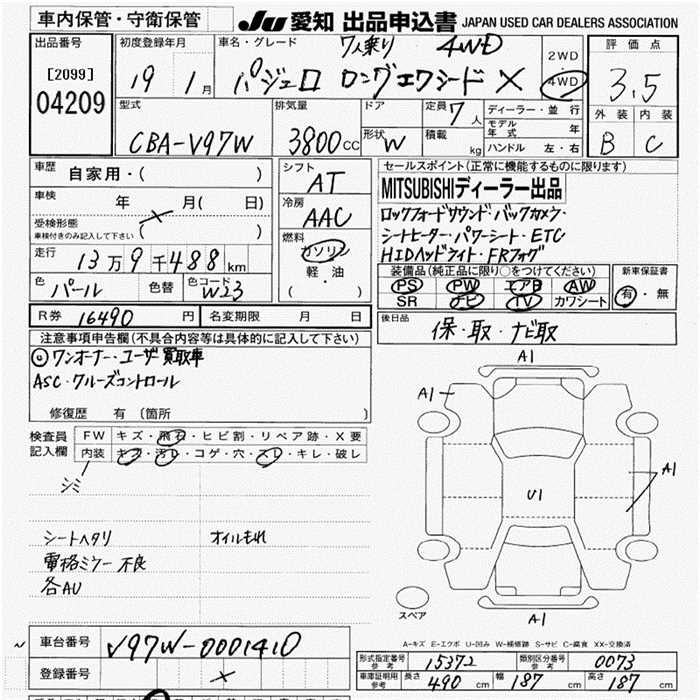 車内保管・守衛保管
JU 愛知 出品申込書 JAPAN USED CAR DEALERS ASSOCIATION
出品番号
[2099]
04209
初度登録年月
19 1月
車名・グレード 7人乗り 4WD
パジェロ ロングエクシード X
2WD
4WD
評価点
3.5
外装 内装
B C
型式
CBA-V97W
排気量
3800CC
ドア
形状 W
定員 7人
積載 kg
ディーラー・並行
モデル年式 年
ハンドル 左・右
車歴 自家用・( )
車検 年 月( 日)
受検形態
車検付きのみ記入して下さい ( )
走行 13万9千488km
色 パール 色替 色コード W23
シフト AT
冷房 AAC
燃料
ガソリン
軽・油
( )
セールスポイント(正常に機能するものに限ります)
MITSUBISHIディーラー出品
ロックフォードサウンド・バックカメラ・
シートヒーター・パワーシート・ETC
HIDヘッドライト・FRフォグ
装備品(純正品に限り○をつけてください) 新車保証書
PS PW エアB AW
SR ナビ TV カワシート
有・無
R券 16490円 名変期限 月 日
後日品 保・取・ナビ取
注意事項申告欄(不具合内容等は具体的に記入して下さい)
◎ワンオーナー・ユーザ買取車
ASC・クルーズコントロール
修復歴 有 (箇所 )
検査員記入欄
FW キズ・飛石・ヒビ割・リペア跡・X要
内装 キズ・汚レ・コゲ・穴・スレ・キレ・破レ
シミ
シートヘタリ オイルもれ
電格ミラー不良
各AU
A1
A1
A1
U1
A1
スペア
A-キズ E-エクボ U-凹み W-補修跡 S-サビ C-腐食 XX-交換済
車台番号 V97W-0001410
登録番号
形式指定番号 参考 15372 類別区分番号 参考 0073
車庫証明用 参考 長さ 490cm 幅 187cm 高さ 187cm